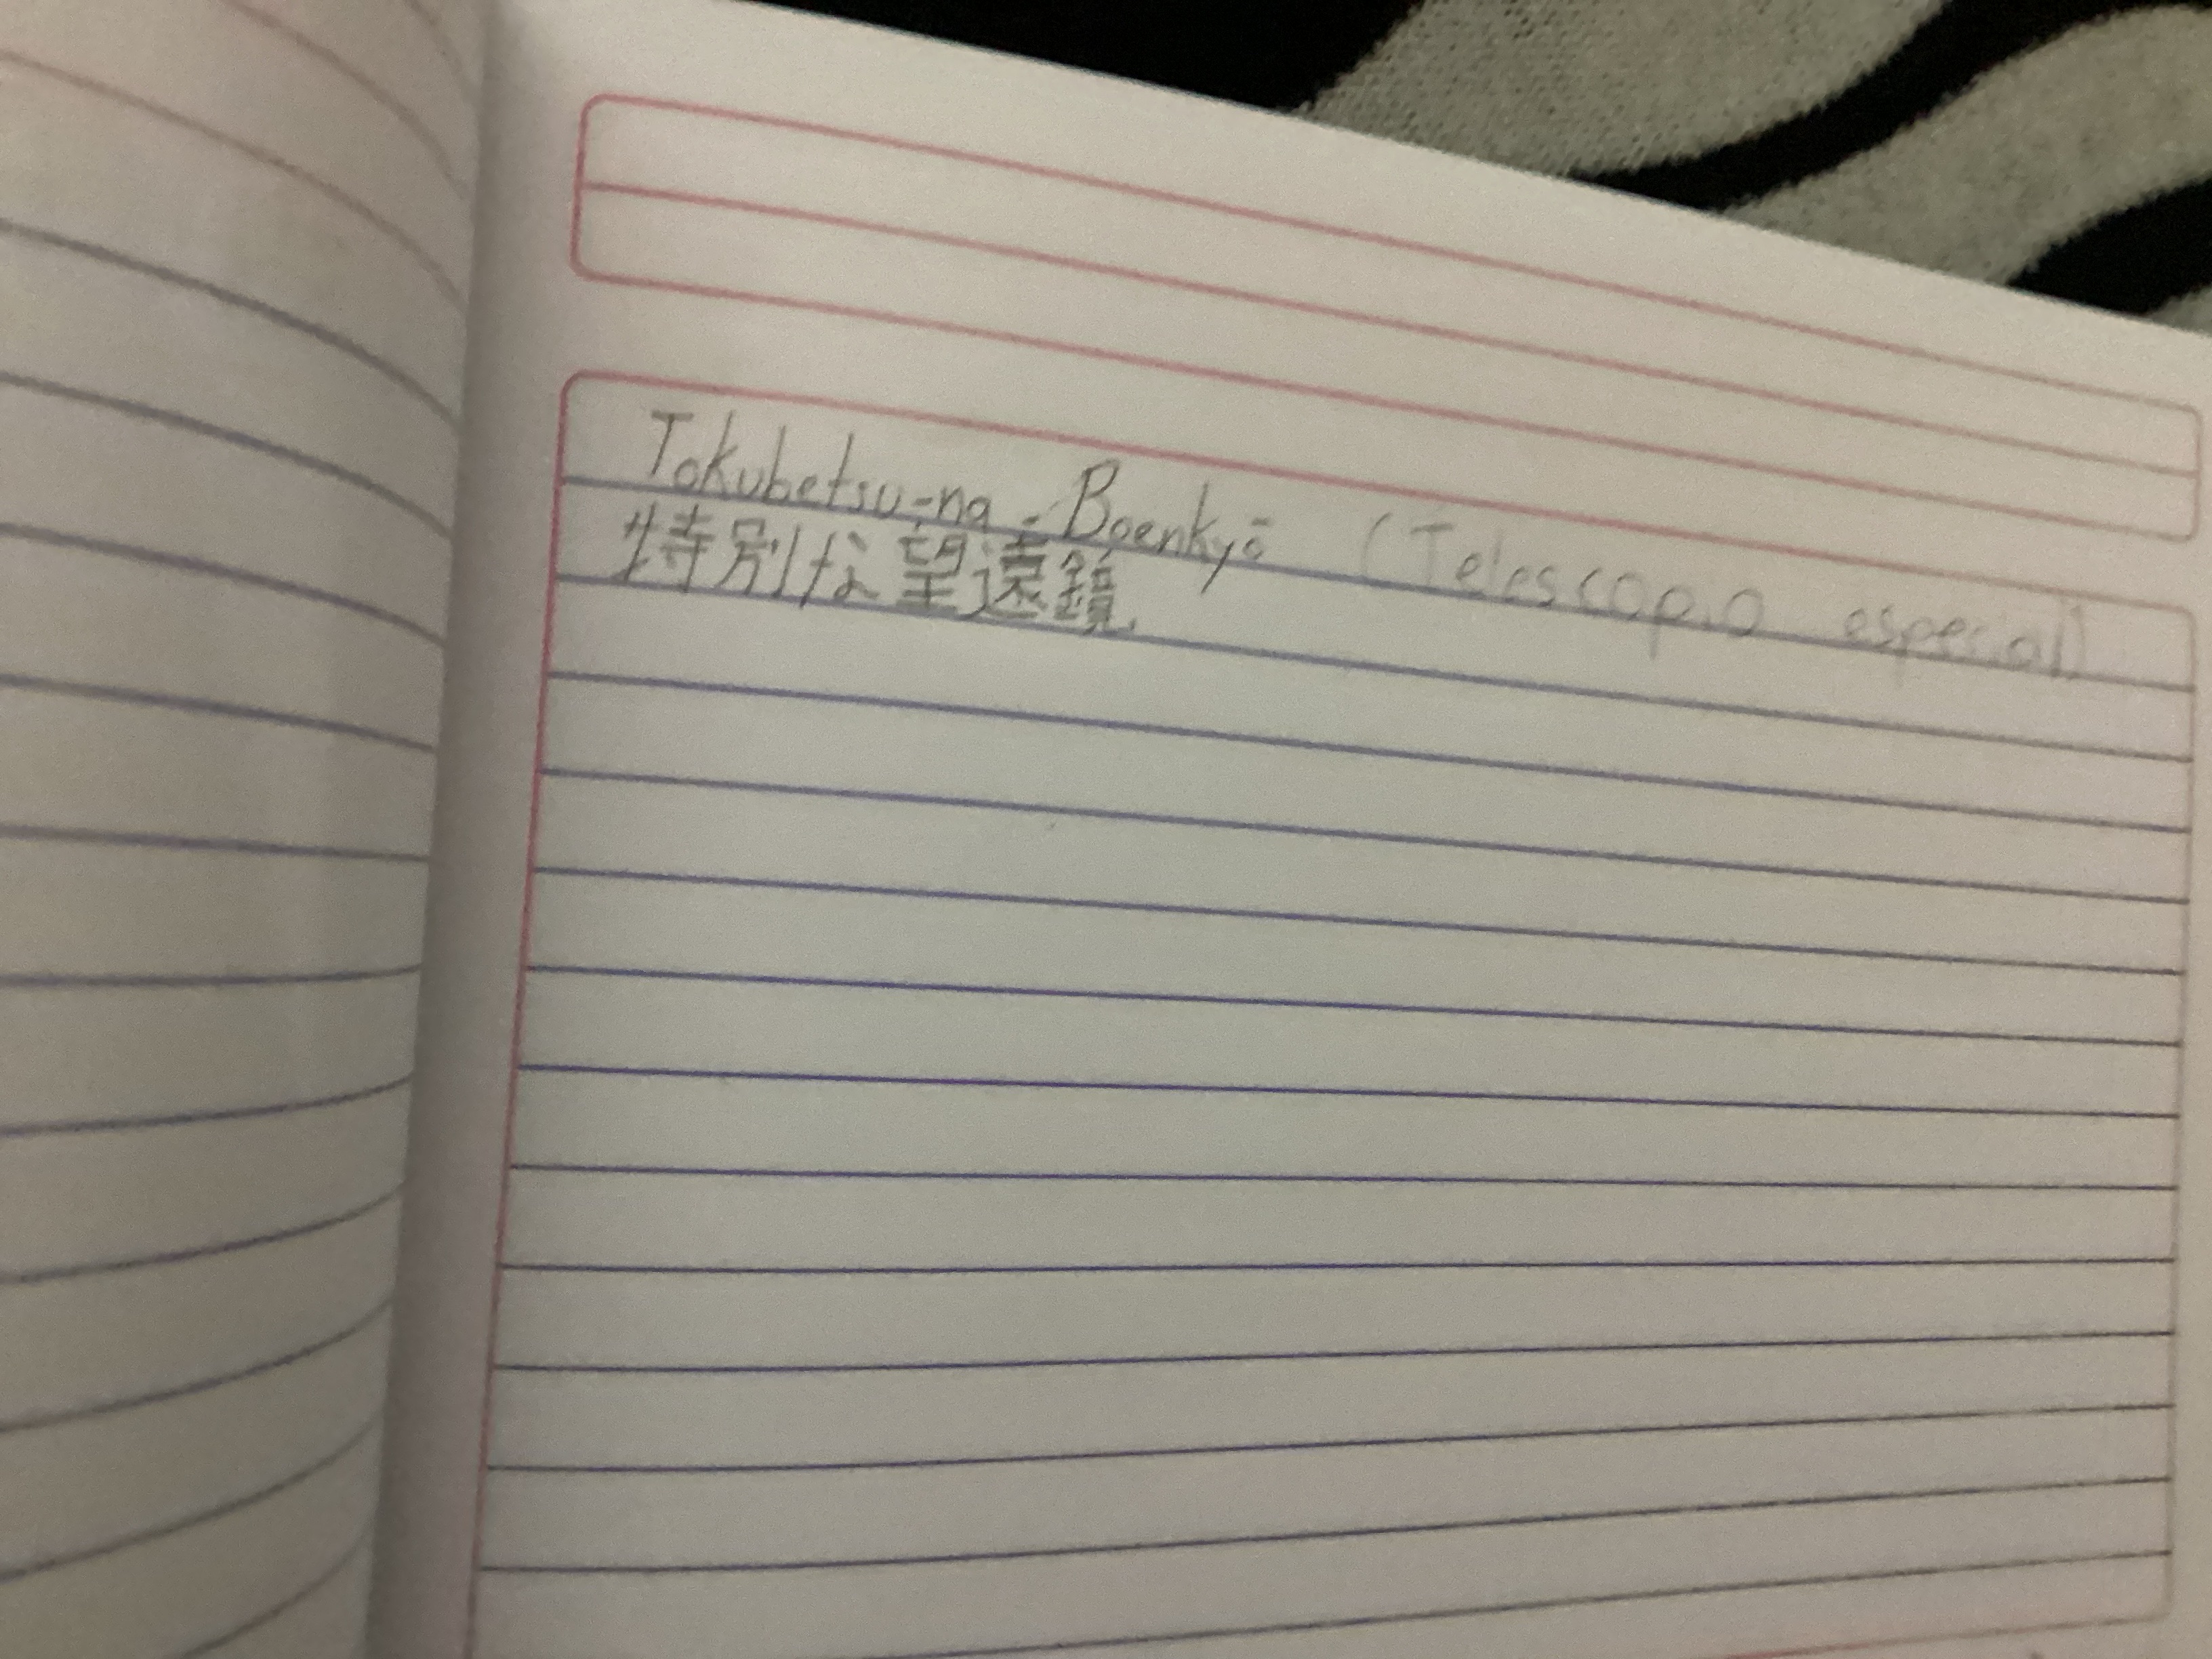 Tokubetsu-na-Boenkyō (Telescopio especial)
特別な望遠鏡